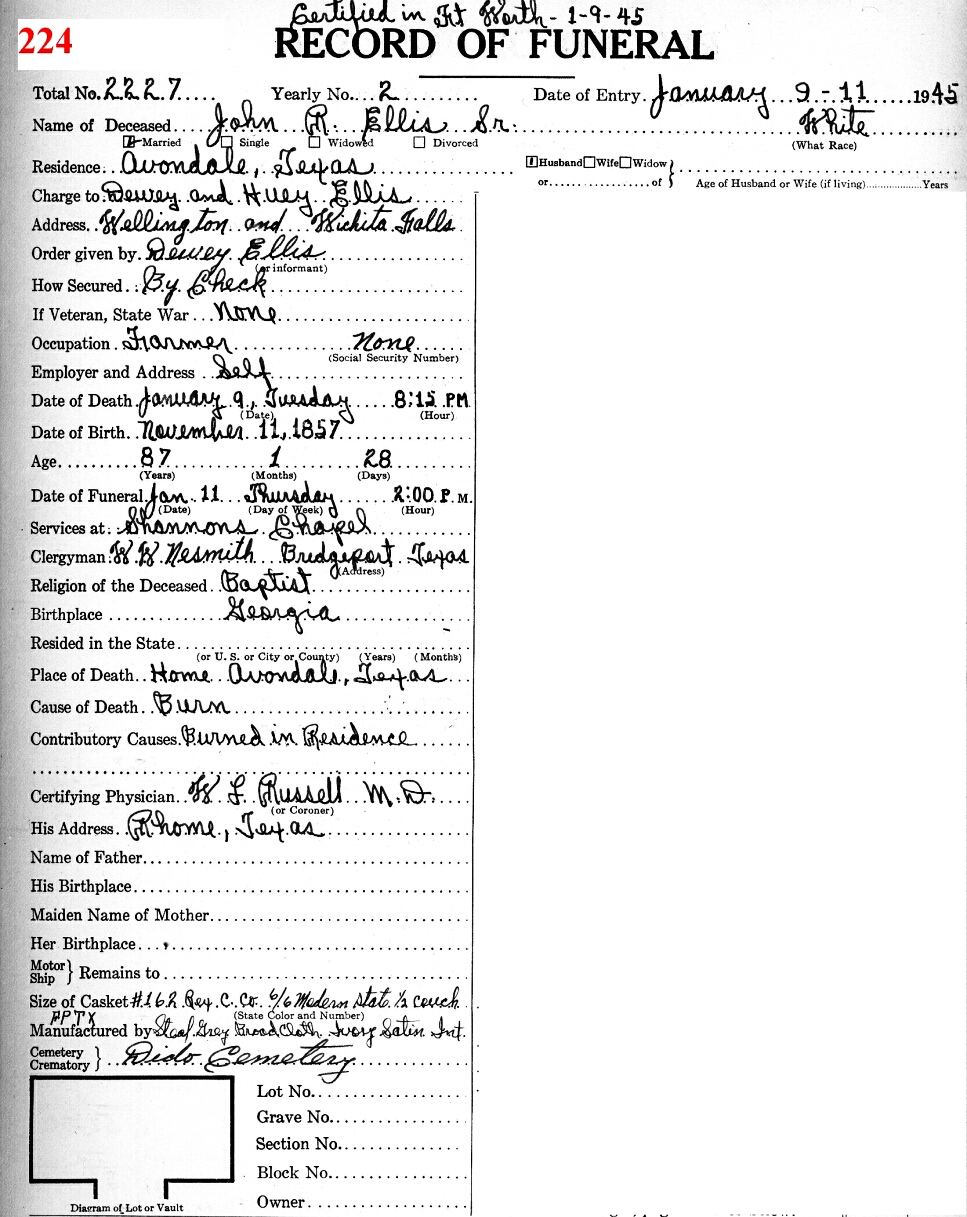 Certified in Ft Worth - 1-9-45
224
RECORD OF FUNERAL
Total No. 2227 Yearly No. 2 Date of Entry January 9-11 1945
Name of Deceased John R. Ellis Sr. White
Married Single Widowed Divorced (What Race)
Residence Avondale, Texas Husband Wife Widow
or of Age of Husband or Wife (if living) Years
Charge to Dewey and Huey Ellis
Address Wellington and Wichita Falls
Order given by Dewey Ellis
(or informant)
How Secured By Check
If Veteran, State War None
Occupation Farmer None
(Social Security Number)
Employer and Address Self
Date of Death January 9, Tuesday 8:15 PM
(Date) (Hour)
Date of Birth November 11, 1857
Age 87 1 28
(Years) (Months) (Days)
Date of Funeral Jan 11 Thursday 2:00 P.M.
(Date) (Day of Week) (Hour)
Services at: Shannons Chapel
Clergyman W W Nesmith Bridgeport Texas
(Address)
Religion of the Deceased Baptist
Birthplace Georgia
Resided in the State
(or U. S. or City or County) (Years) (Months)
Place of Death Home Avondale, Texas
Cause of Death Burn
Contributory Causes Burned in Residence
Certifying Physician W L Russell M.D.
(or Coroner)
His Address Rhome, Texas
Name of Father
His Birthplace
Maiden Name of Mother
Her Birthplace
Motor
Ship } Remains to
Size of Casket #162 C. Co. 6/6 Modern State 1/2 couch
(State Color and Number)
Manufactured by Grey BroadCloth Ivory Satin Int.
Cemetery
Crematory } Dido Cemetery
Lot No.
Grave No.
Section No.
Block No.
Owner
Diagram of Lot or Vault